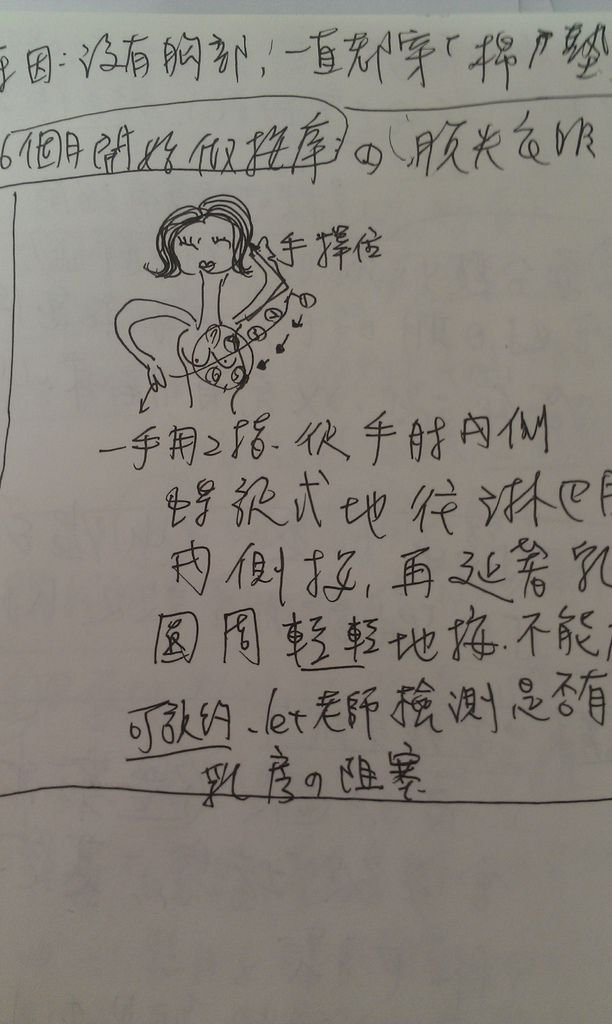 因:沒有胸部,一直都穿「棉」墊
6個月開始做按摩の
手擇位
一手用2指.從手肘內側
螺紋式地往淋巴
內側按,再延著乳
圓周輕輕地按.不能
可預約.let老師檢測是否有
乳房の阻塞